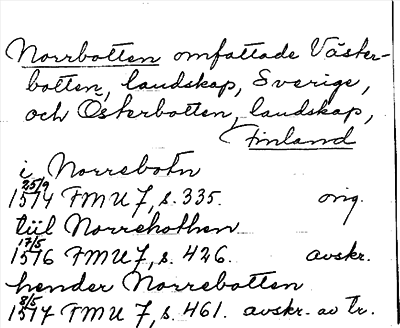 Norrbotten omfattade Väster-
botten, landskap, Sverige,
och Österbotten, landskap,
Finland
i Norrebotn
25/9
1514 FMU 7, s. 335. orig.
tiil Norrehothen
17/5
1516 FMU 7, s. 426. avskr.
hender Norrebotten
8/5
1517 FMU 7, s. 461. avskr. av tr.